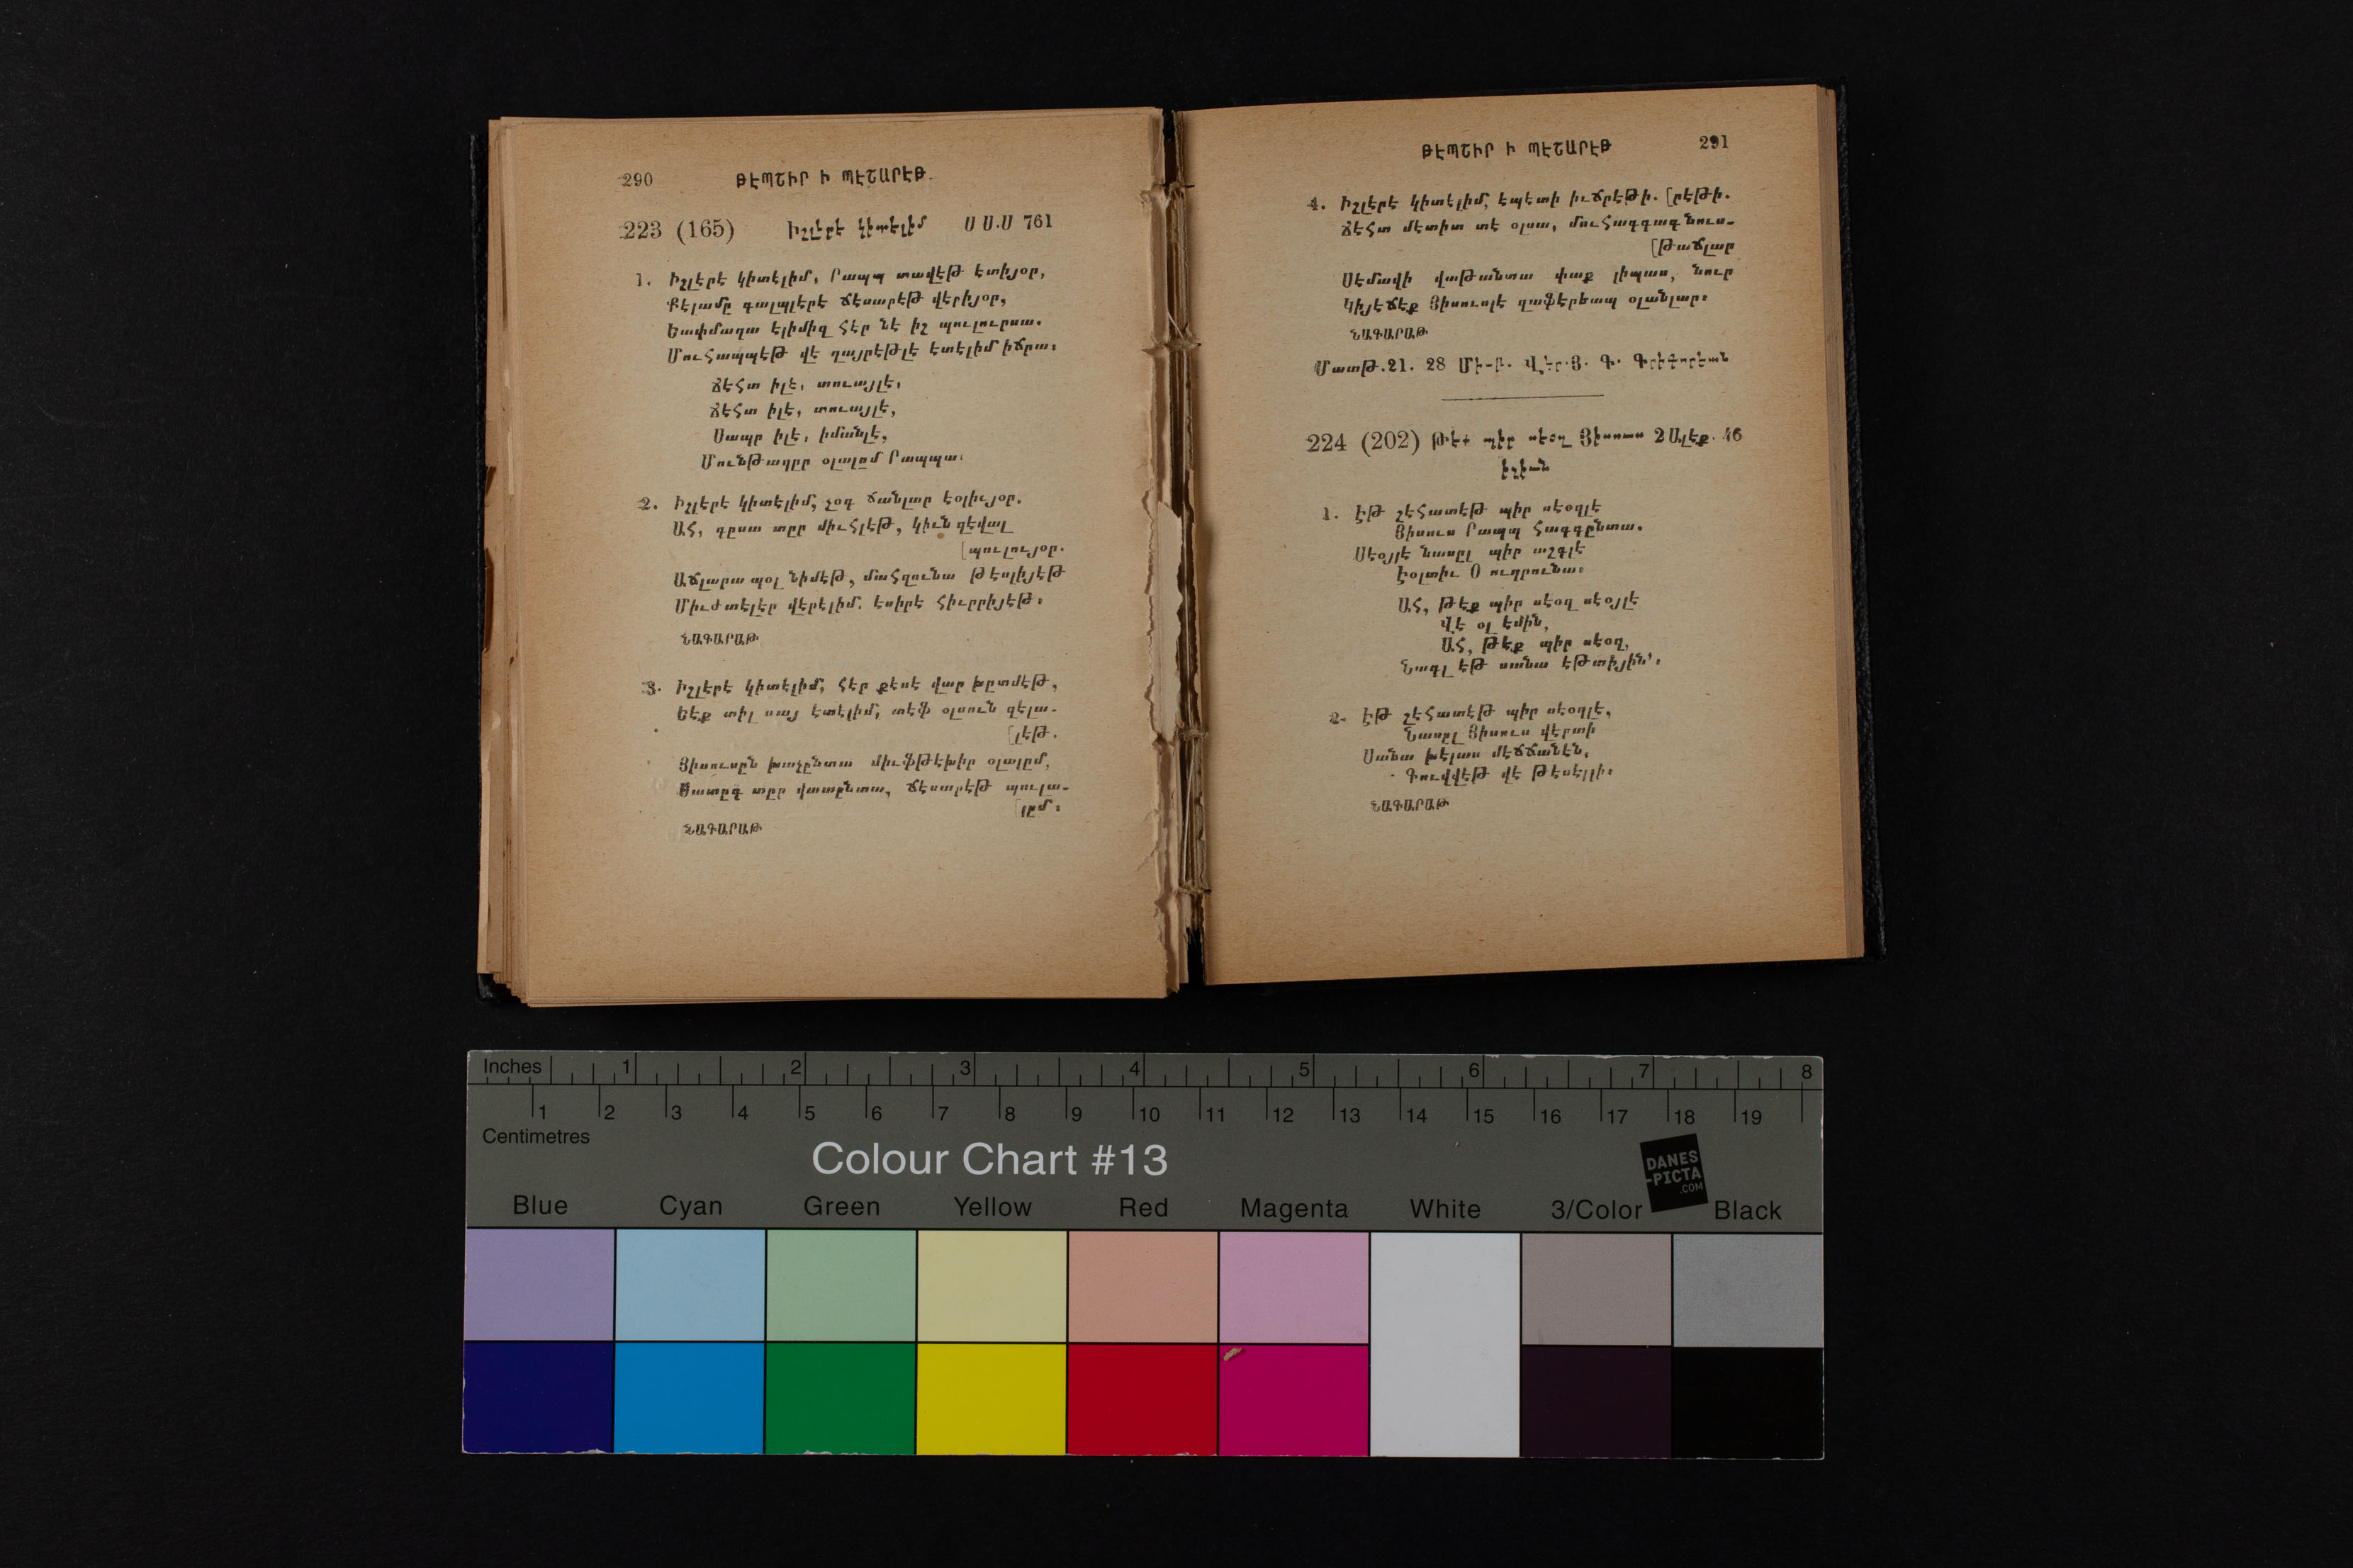 290 ԹԷՊՇԻՐ Ի ՊԷՇԱՐԷԹ.
223 (165) Իշլէրէ կիտելիմ Ս Ս.Ս 761
1. Իշլէրէ կիտէլիմ, Րապպ տավէթ էտիյօր,
Քէլամը գալպլէրէ ճէսարէթ վէրիյօր,
Եափմաղա ելիմիզ հէր նէ իշ պուլուրսա.
Մուհապպէթ վէ ղայրէթլէ էտէլիմ իճրա։
Ճէհտ իլէ, տուայլէ,
Ճէհտ իլէ, տուայլէ,
Սապր իլէ, իմանլէ,
Մունթազըր օլալըմ Րապպա։
2. Իշլէրէ կիտէլիմ, չօգ ճանլար էօլիւյօր.
Ահ, գըսա տըր միւհլէթ, կիւն զէվալ
[պուլույօր.
Աճլարա պօլ նիմէթ, մահզունա թէսլիյէթ
Միւժտէլէր վէրէլիմ. եսիրէ հիւրրիյէթ։
ՆԱԳԱՐԱԹ
3. Իշլէրէ կիտէլիմ, հէր քէսէ վար խըտմէթ,
Եէք տիլ սայ էտէլիմ, տէֆ օլսուն զէլա-
[լէթ.
Յիսուսըն խաչընտա միւֆթէխիր օլալըմ,
Սատըգ տըր վատընտա, ճէսարէթ պուլա-
[լըմ։
ՆԱԳԱՐԱԹ
ԹԷՊՇԻՐ Ի ՊԷՇԱՐԷԹ 291
4. Իշլէրէ կիտէլիմ, էպէտի իւճրէթի. [րէթի.
Ճէհտ մէտիտ տէ օլսա, մուհագգագ նուս-
[թաճլար
Սէմավի վաթանտա փաք լիպաս, նուր
Կիյէճէք Յիսուսլէ զաֆէրեապ օլանլար։
ՆԱԳԱՐԱԹ
Մատթ.21. 28 Վէր.Յ. Գ. Գրիգորեան
224 (202) Թէք պիր սէօզ Յիսուս 2 Ալէք. 46
իչիւն
1. Էթ շէհատէթ պիր սէօզլէ
Յիսուս Րապպ հագգընտա.
Սէօյլէ նասըլ պիր աշգլէ
Էօլտիւ Օ ուղրունա։
Ահ, թէք պիր սէօզ սէօյլէ
Վէ օլ էմին,
Ահ, թէք պիր սէօզ,
Նագլ էթ սանա էթտիյին՛։
2. Էթ շէհատէթ պիր սէօզլէ,
Նասըլ Յիսուս վէրտի
Սանա խէլաս մէճճանէն,
Գուվվէթ վէ թէսէլլի։
ՆԱԳԱՐԱԹ
Inches 1 2 3 4 5 6 7 8
1 2 3 4 5 6 7 8 9 10 11 12 13 14 15 16 17 18 19
Centimetres
Colour Chart #13
DANES
-PICTA
.COM
Blue Cyan Green Yellow Red Magenta White 3/Color Black